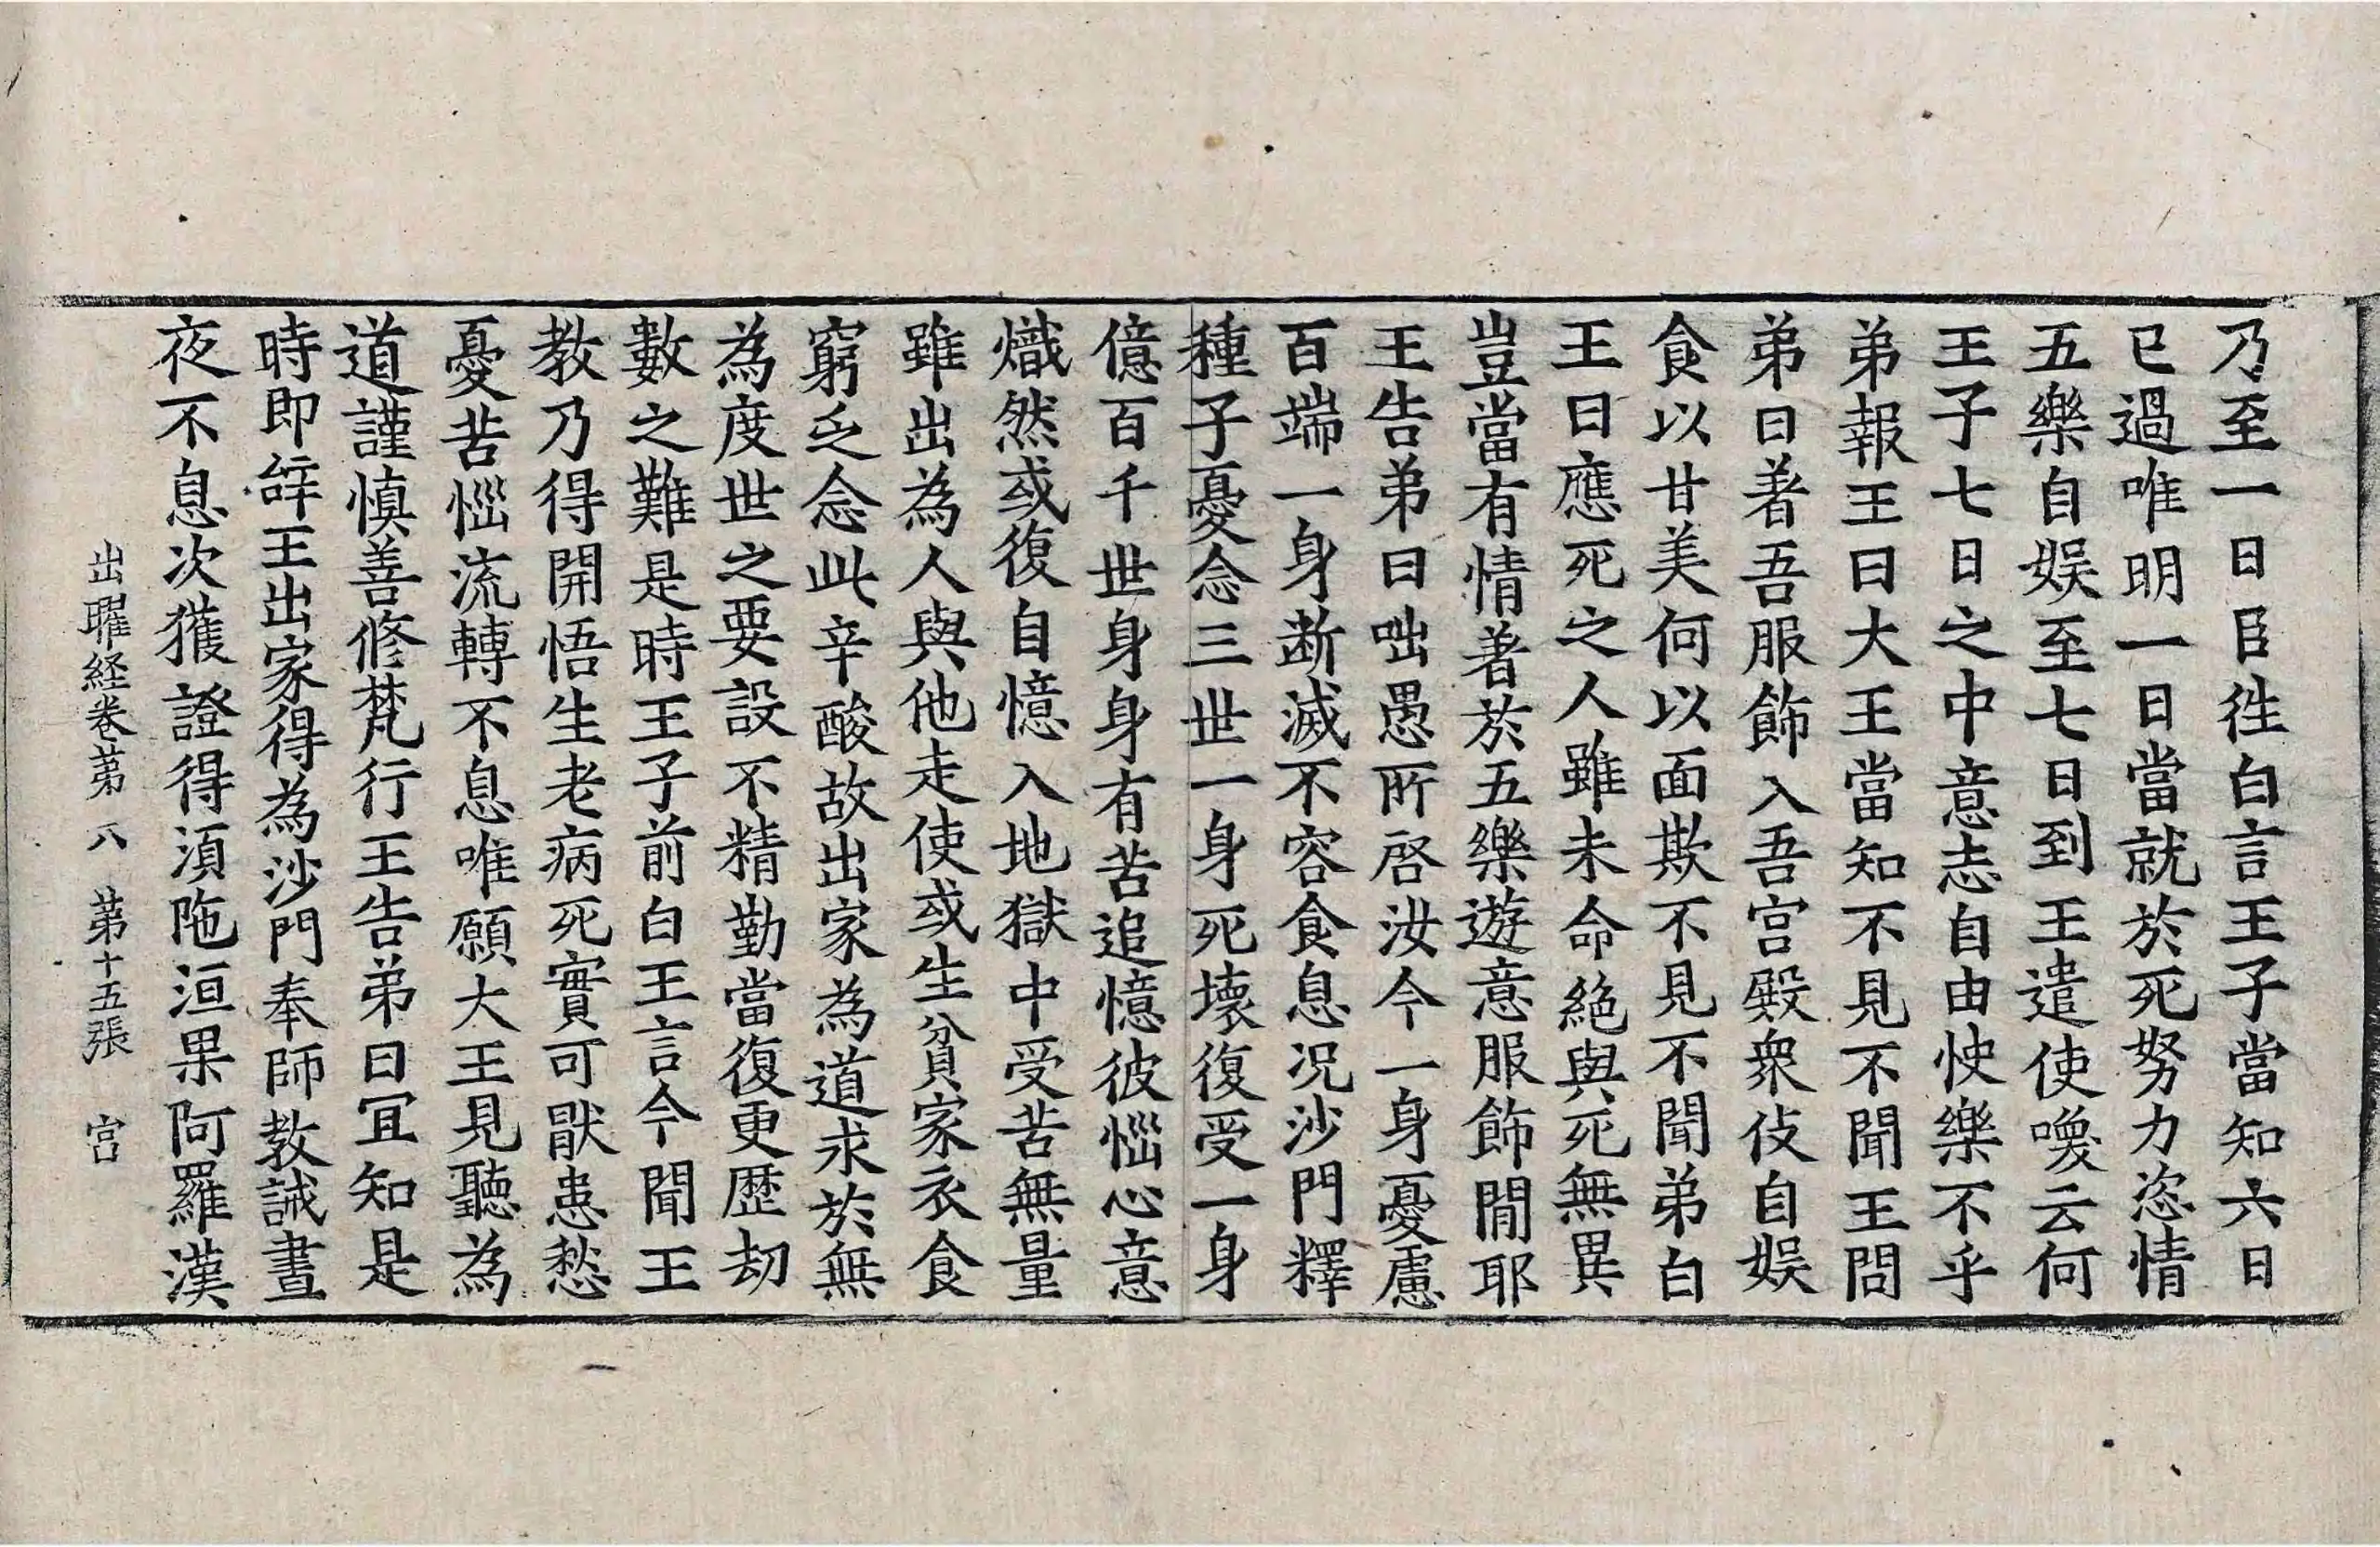 乃至一日臣徃白言王子當知六日
已過唯明一日當就於死努力恣情
五樂自娱至七日到王遣使喚云何
王子七日之中意志自由快樂不乎
弟報王曰大王當知不見不聞王問
弟曰著吾服飾入吾宫殿衆伎自娱
食以甘美何以面欺不見不聞弟白
王曰應死之人雖未命絶與死無異
豈當有情著於五樂遊意服飾閒耶
王告弟曰咄愚所啓汝今一身憂慮
百端一身断滅不容食息况沙門釋
種子憂念三世一身死壊復受一身
億百千世身身有苦追憶彼惱心意
熾然或復自憶入地獄中受苦無量
雖出為人與他走使或生貧家衣食
窮乏念此辛酸故出家為道求於無
為度世之要設不精勤當復更歴劫
數之難是時王子前白王言今聞王
教乃得開悟生老病死實可猒患愁
憂苦惱流轉不息唯願大王見聽為
道謹慎善修梵行王告弟曰冝知是
時即辝王出家得為沙門奉師教誡晝
夜不息次獲證得湏陁洹果阿羅漢
出曜経卷苐八　苐十五張　宫